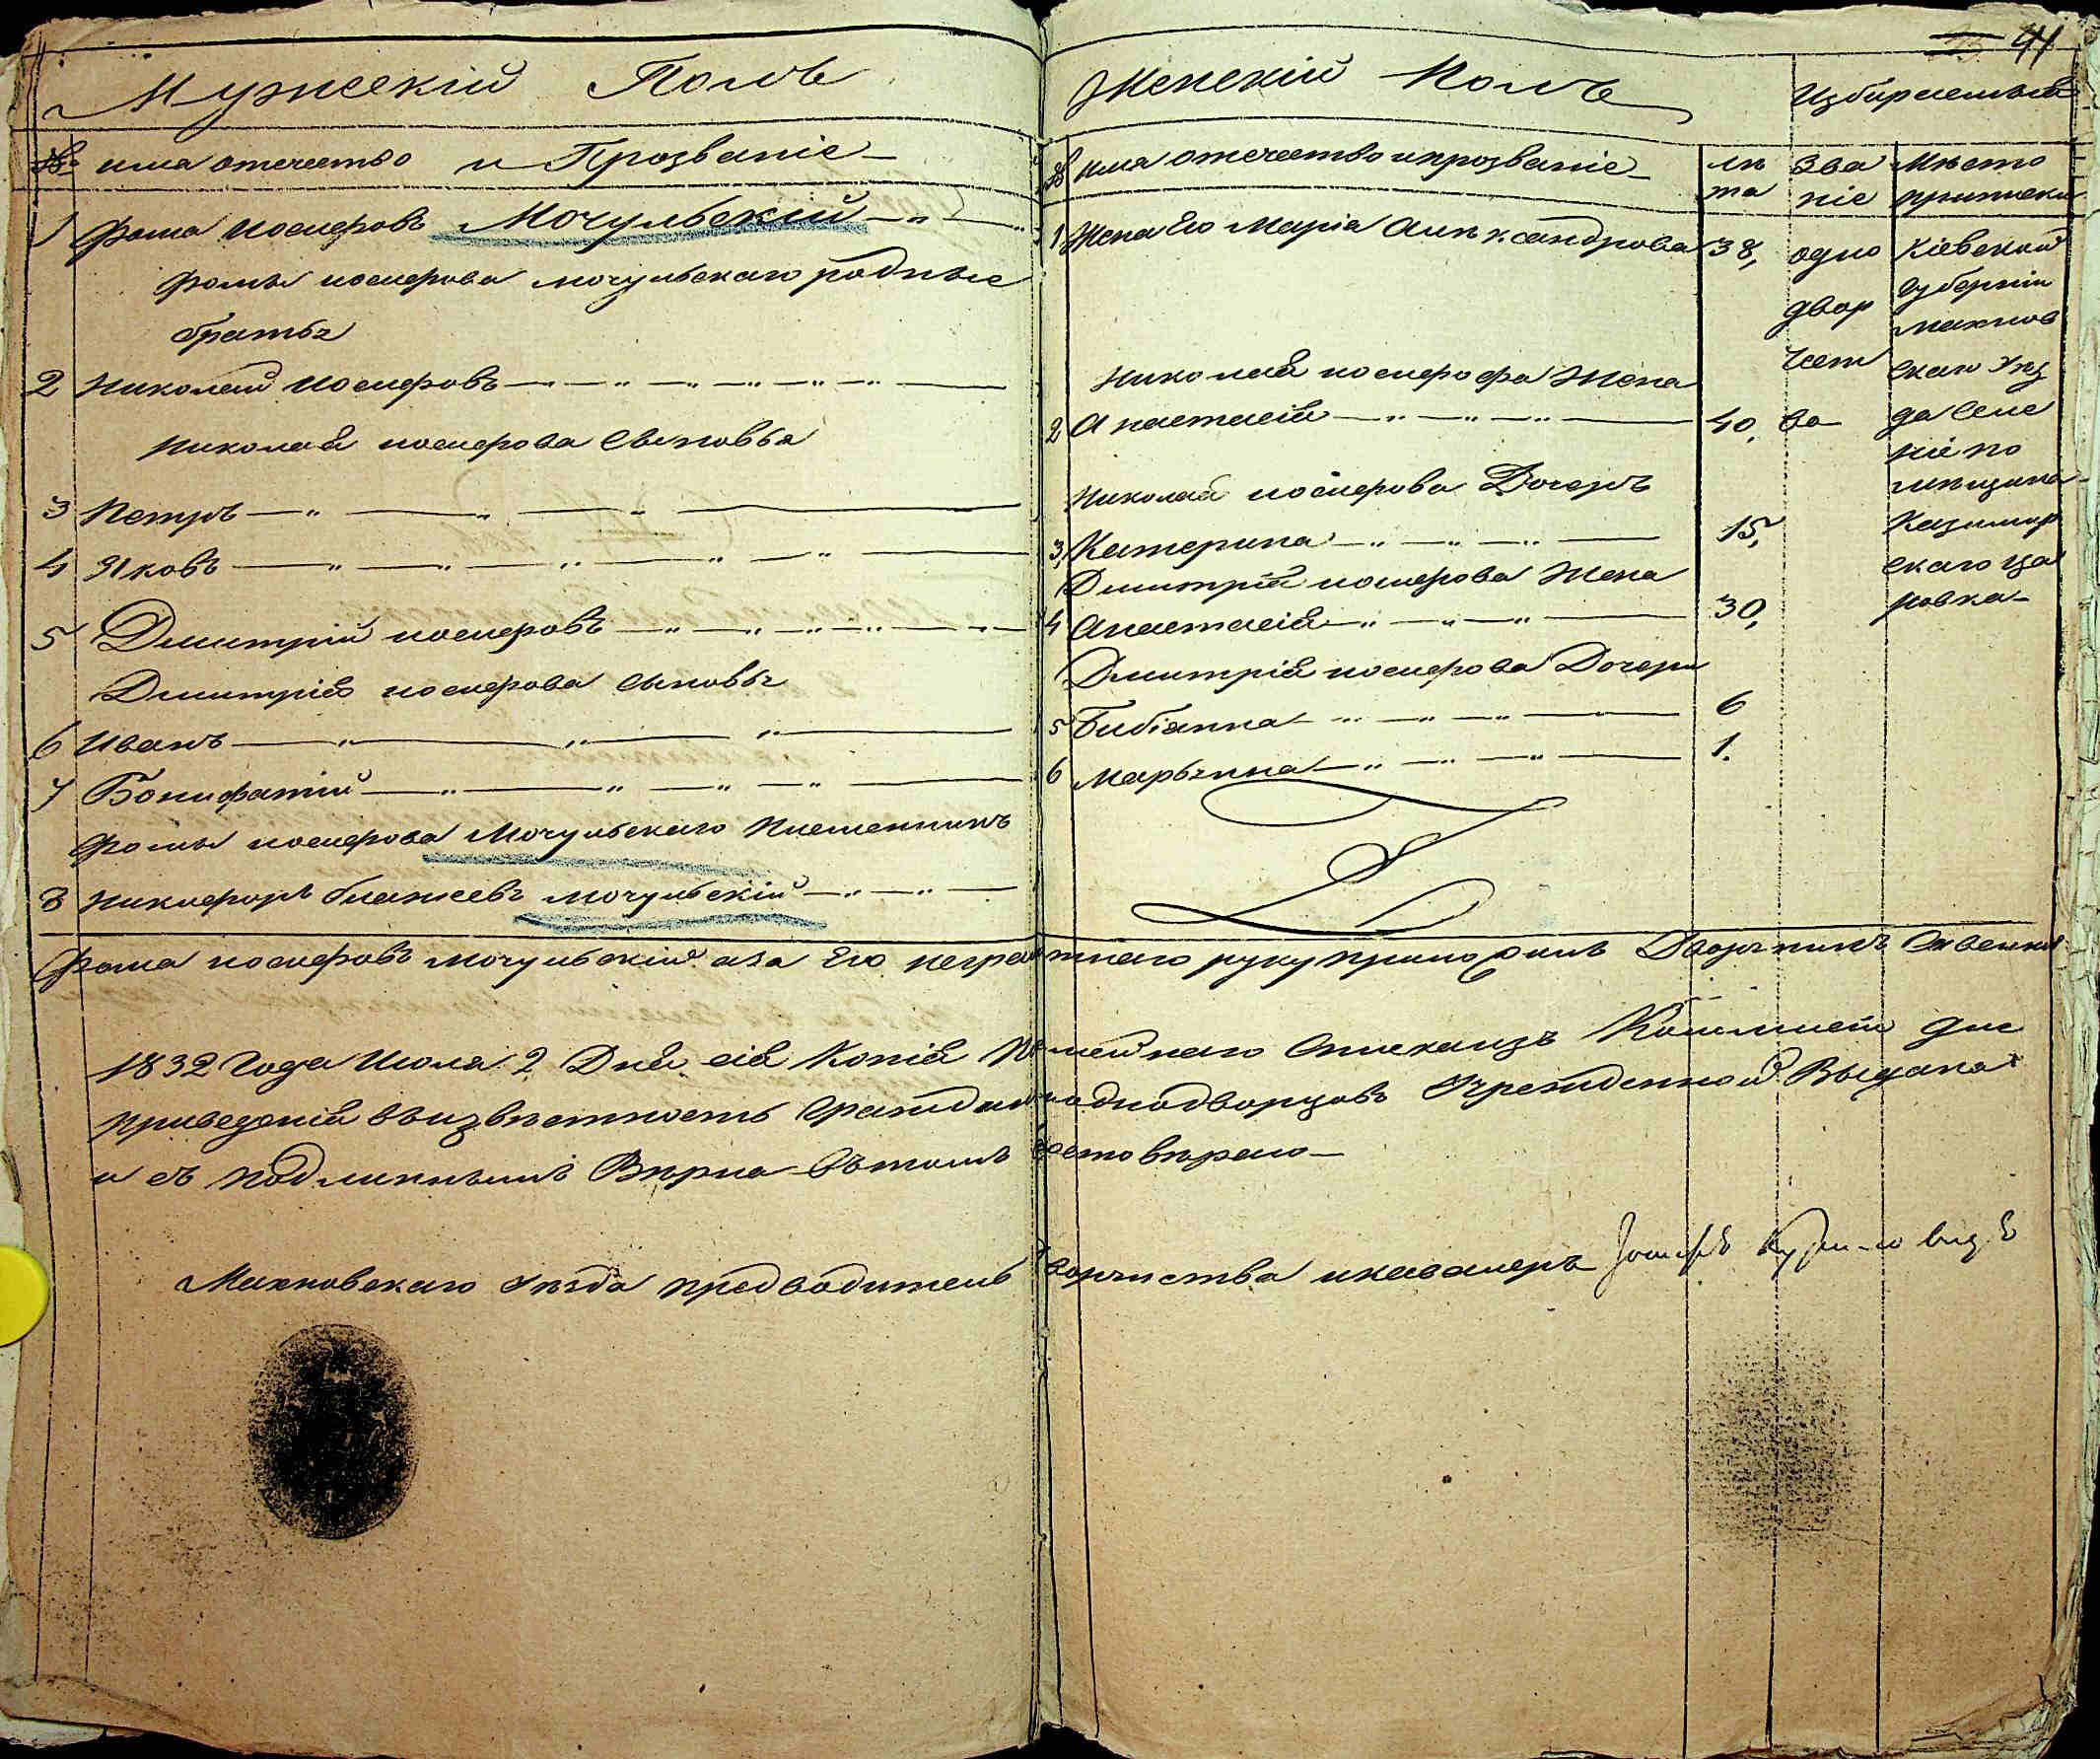 41
Мужескій Полъ
№ имя отечество и Прозваніе
1 Фома Іосифовъ Мочульскій
Фомы іосифова мочульскаго родные
братья
2 Николай Иосифовъ
Николая иосифова Сыновья
3 Петръ
4 Яковъ
5 Дмитрій иосифовъ
Дмитрія иосифова сыновья
6 Иванъ
7 Бонифатій
Фомы иосифова Мочульскаго Племенникъ
8 Никифоръ блажеевъ мочульскій
Женскій Полъ
Избираемыя
№ имя отечество и прозваніе
лѣ та
Зва ніе
Мѣсто приписки
1 Жена Его Марія Александрова 38,
Николая иосифофа Жена
2 Анастасія 40,
Николая иосифова Дочерь
3 Катерина 15,
Дмитрія иосифова Жена
4 Анастасія 30,
Дмитрія иосифова Дочери
5 Бибіанна 6
6 Марьяна 1.
одно
двор
чест
ва
Кіевской
губерніи
махнов
скаго Уез
да Селе
ніе по
мещика
Казимир
скаго
ровка
Фома иосифовъ мочульскій а за Его неграмотнаго руку приложилъ Дворянинъ
1832 Года Июля 2 Дня сія Копія Комисіи для
приведенія въ извѣстность Граждан и однодворцовъ Учрежденной Выдана
и съ подлиннымъ Вѣрна Въ томъ
Махновскаго Уѣзда предводитель дворянства и кавалеръ